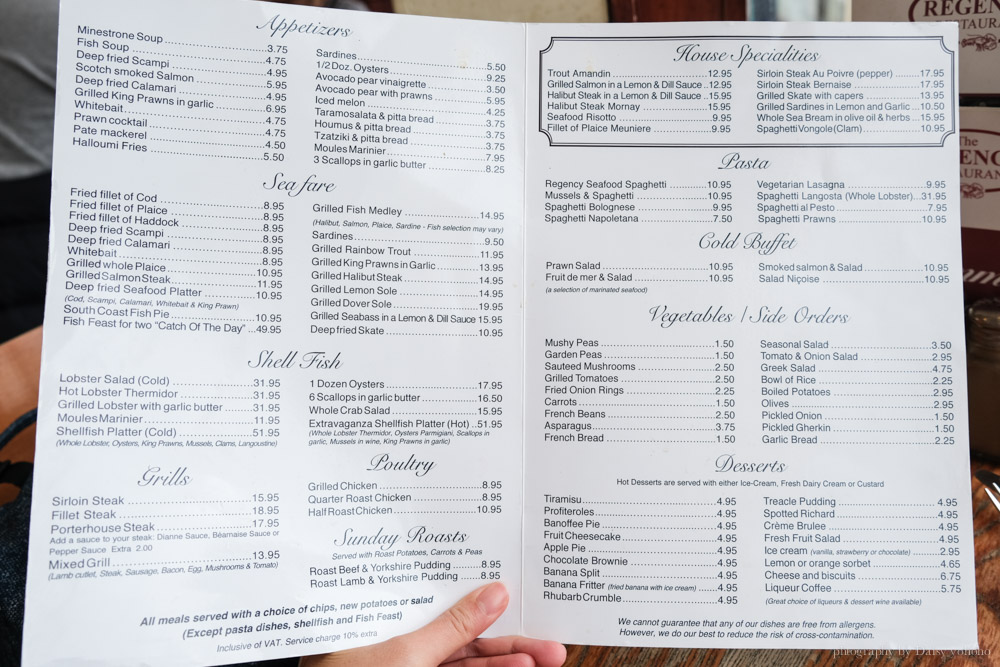 Appetizers
Minestrone Soup 3.75
Fish Soup 4.75
Deep fried Scampi 4.95
Scotch smoked Salmon 5.95
Deep fried Calamari 4.95
Grilled King Prawns in garlic 6.95
Whitebait 4.75
Prawn cocktail 4.75
Pate mackerel 4.50
Halloumi Fries 5.50
Sardines 5.50
1/2 Doz. Oysters 9.25
Avocado pear vinaigrette 3.50
Avocado pear with prawns 5.95
Iced melon 4.25
Taramosalata & pitta bread 3.75
Houmus & pitta bread 3.75
Tzatziki & pitta bread 3.75
Moules Marinier 7.95
3 Scallops in garlic butter 8.25
Sea fare
Fried fillet of Cod 8.95
Fried fillet of Plaice 8.95
Fried fillet of Haddock 8.95
Deep fried Scampi 8.95
Deep fried Calamari 8.95
Whitebait 8.95
Grilled whole Plaice 10.95
Grilled Salmon Steak 11.95
Deep fried Seafood Platter 10.95
(Cod, Scampi, Calamari, Whitebait & King Prawn)
South Coast Fish Pie 10.95
Fish Feast for two "Catch Of The Day" 49.95
Grilled Fish Medley 14.95
(Halibut, Salmon, Plaice, Sardine - Fish selection may vary)
Sardines 9.50
Grilled Rainbow Trout 11.95
Grilled King Prawns in Garlic 13.95
Grilled Halibut Steak 14.95
Grilled Lemon Sole 14.95
Grilled Dover Sole 19.95
Grilled Seabass in a Lemon & Dill Sauce 15.95
Deep fried Skate 10.95
Shell Fish
Lobster Salad (Cold) 31.95
Hot Lobster Thermidor 31.95
Grilled Lobster with garlic butter 31.95
Moules Marinier 11.95
Shellfish Platter (Cold) 51.95
(Whole Lobster, Oysters, King Prawns, Mussels, Clams, Langoustine)
1 Dozen Oysters 17.95
6 Scallops in garlic butter 16.50
Whole Crab Salad 15.95
Extravaganza Shellfish Platter (Hot) 51.95
(Whole Lobster Thermidor, Oysters Parmigani, Scallops in
garlic, Mussels in wine, King Prawns in garlic)
Grills
Sirloin Steak 15.95
Fillet Steak 18.95
Porterhouse Steak 17.95
Add a sauce to your steak: Dianne Sauce, Béarnaise Sauce or
Pepper Sauce Extra 2.00
Mixed Grill 13.95
(Lamb cutlet, Steak, Sausage, Bacon, Egg, Mushrooms & Tomato)
Poultry
Grilled Chicken 8.95
Quarter Roast Chicken 8.95
Half Roast Chicken 10.95
Sunday Roasts
Served with Roast Potatoes, Carrots & Peas
Roast Beef & Yorkshire Pudding 8.95
Roast Lamb & Yorkshire Pudding 8.95
All meals served with a choice of chips, new potatoes or salad
(Except pasta dishes, shellfish and Fish Feast)
Inclusive of VAT. Service charge 10% extra
House Specialities
Trout Amandin 12.95
Grilled Salmon in a Lemon & Dill Sauce 12.95
Halibut Steak in a Lemon & Dill Sauce 15.95
Halibut Steak Mornay 15.95
Seafood Risotto 9.95
Fillet of Plaice Meuniere 9.95
Sirloin Steak Au Poivre (pepper) 17.95
Sirloin Steak Bernaise 17.95
Grilled Skate with capers 13.95
Grilled Sardines in Lemon and Garlic 10.50
Whole Sea Bream in olive oil & herbs 15.95
Spaghetti Vongole (Clam) 10.95
Pasta
Regency Seafood Spaghetti 10.95
Mussels & Spaghetti 10.95
Spaghetti Bolognese 9.95
Spaghetti Napoletana 7.50
Vegetarian Lasagna 9.95
Spaghetti Langosta (Whole Lobster) 31.95
Spaghetti al Pesto 7.95
Spaghetti Prawns 10.95
Cold Buffet
Prawn Salad 10.95
Fruit de mer & Salad 10.95
(a selection of marinated seafood)
Smoked salmon & Salad 10.95
Salad Niçoise 10.95
Vegetables / Side Orders
Mushy Peas 1.50
Garden Peas 1.50
Sauteed Mushrooms 2.50
Grilled Tomatoes 2.50
Fried Onion Rings 2.25
Carrots 1.50
French Beans 2.50
Asparagus 3.75
French Bread 1.50
Seasonal Salad 3.50
Tomato & Onion Salad 2.95
Greek Salad 4.75
Bowl of Rice 2.25
Boiled Potatoes 2.95
Olives 2.95
Pickled Onion 1.50
Pickled Gherkin 1.50
Garlic Bread 2.25
Desserts
Hot Desserts are served with either Ice-Cream, Fresh Dairy Cream or Custard
Tiramisu 4.95
Profiteroles 4.95
Banoffee Pie 4.95
Fruit Cheesecake 4.95
Apple Pie 4.95
Chocolate Brownie 4.95
Banana Split 4.95
Banana Fritter (fried banana with ice cream) 4.95
Rhubarb Crumble 4.95
Treacle Pudding 4.95
Spotted Richard 4.95
Crème Brulee 4.95
Fresh Fruit Salad 4.95
Ice cream (vanilla, strawberry or chocolate) 2.95
Lemon or orange sorbet 4.65
Cheese and biscuits 6.75
Liqueur Coffee 5.75
(Great choice of liqueurs & dessert wine available)
We cannot guarantee that any of our dishes are free from allergens.
However, we do our best to reduce the risk of cross-contamination.
The
photography by Daisy Yohoho